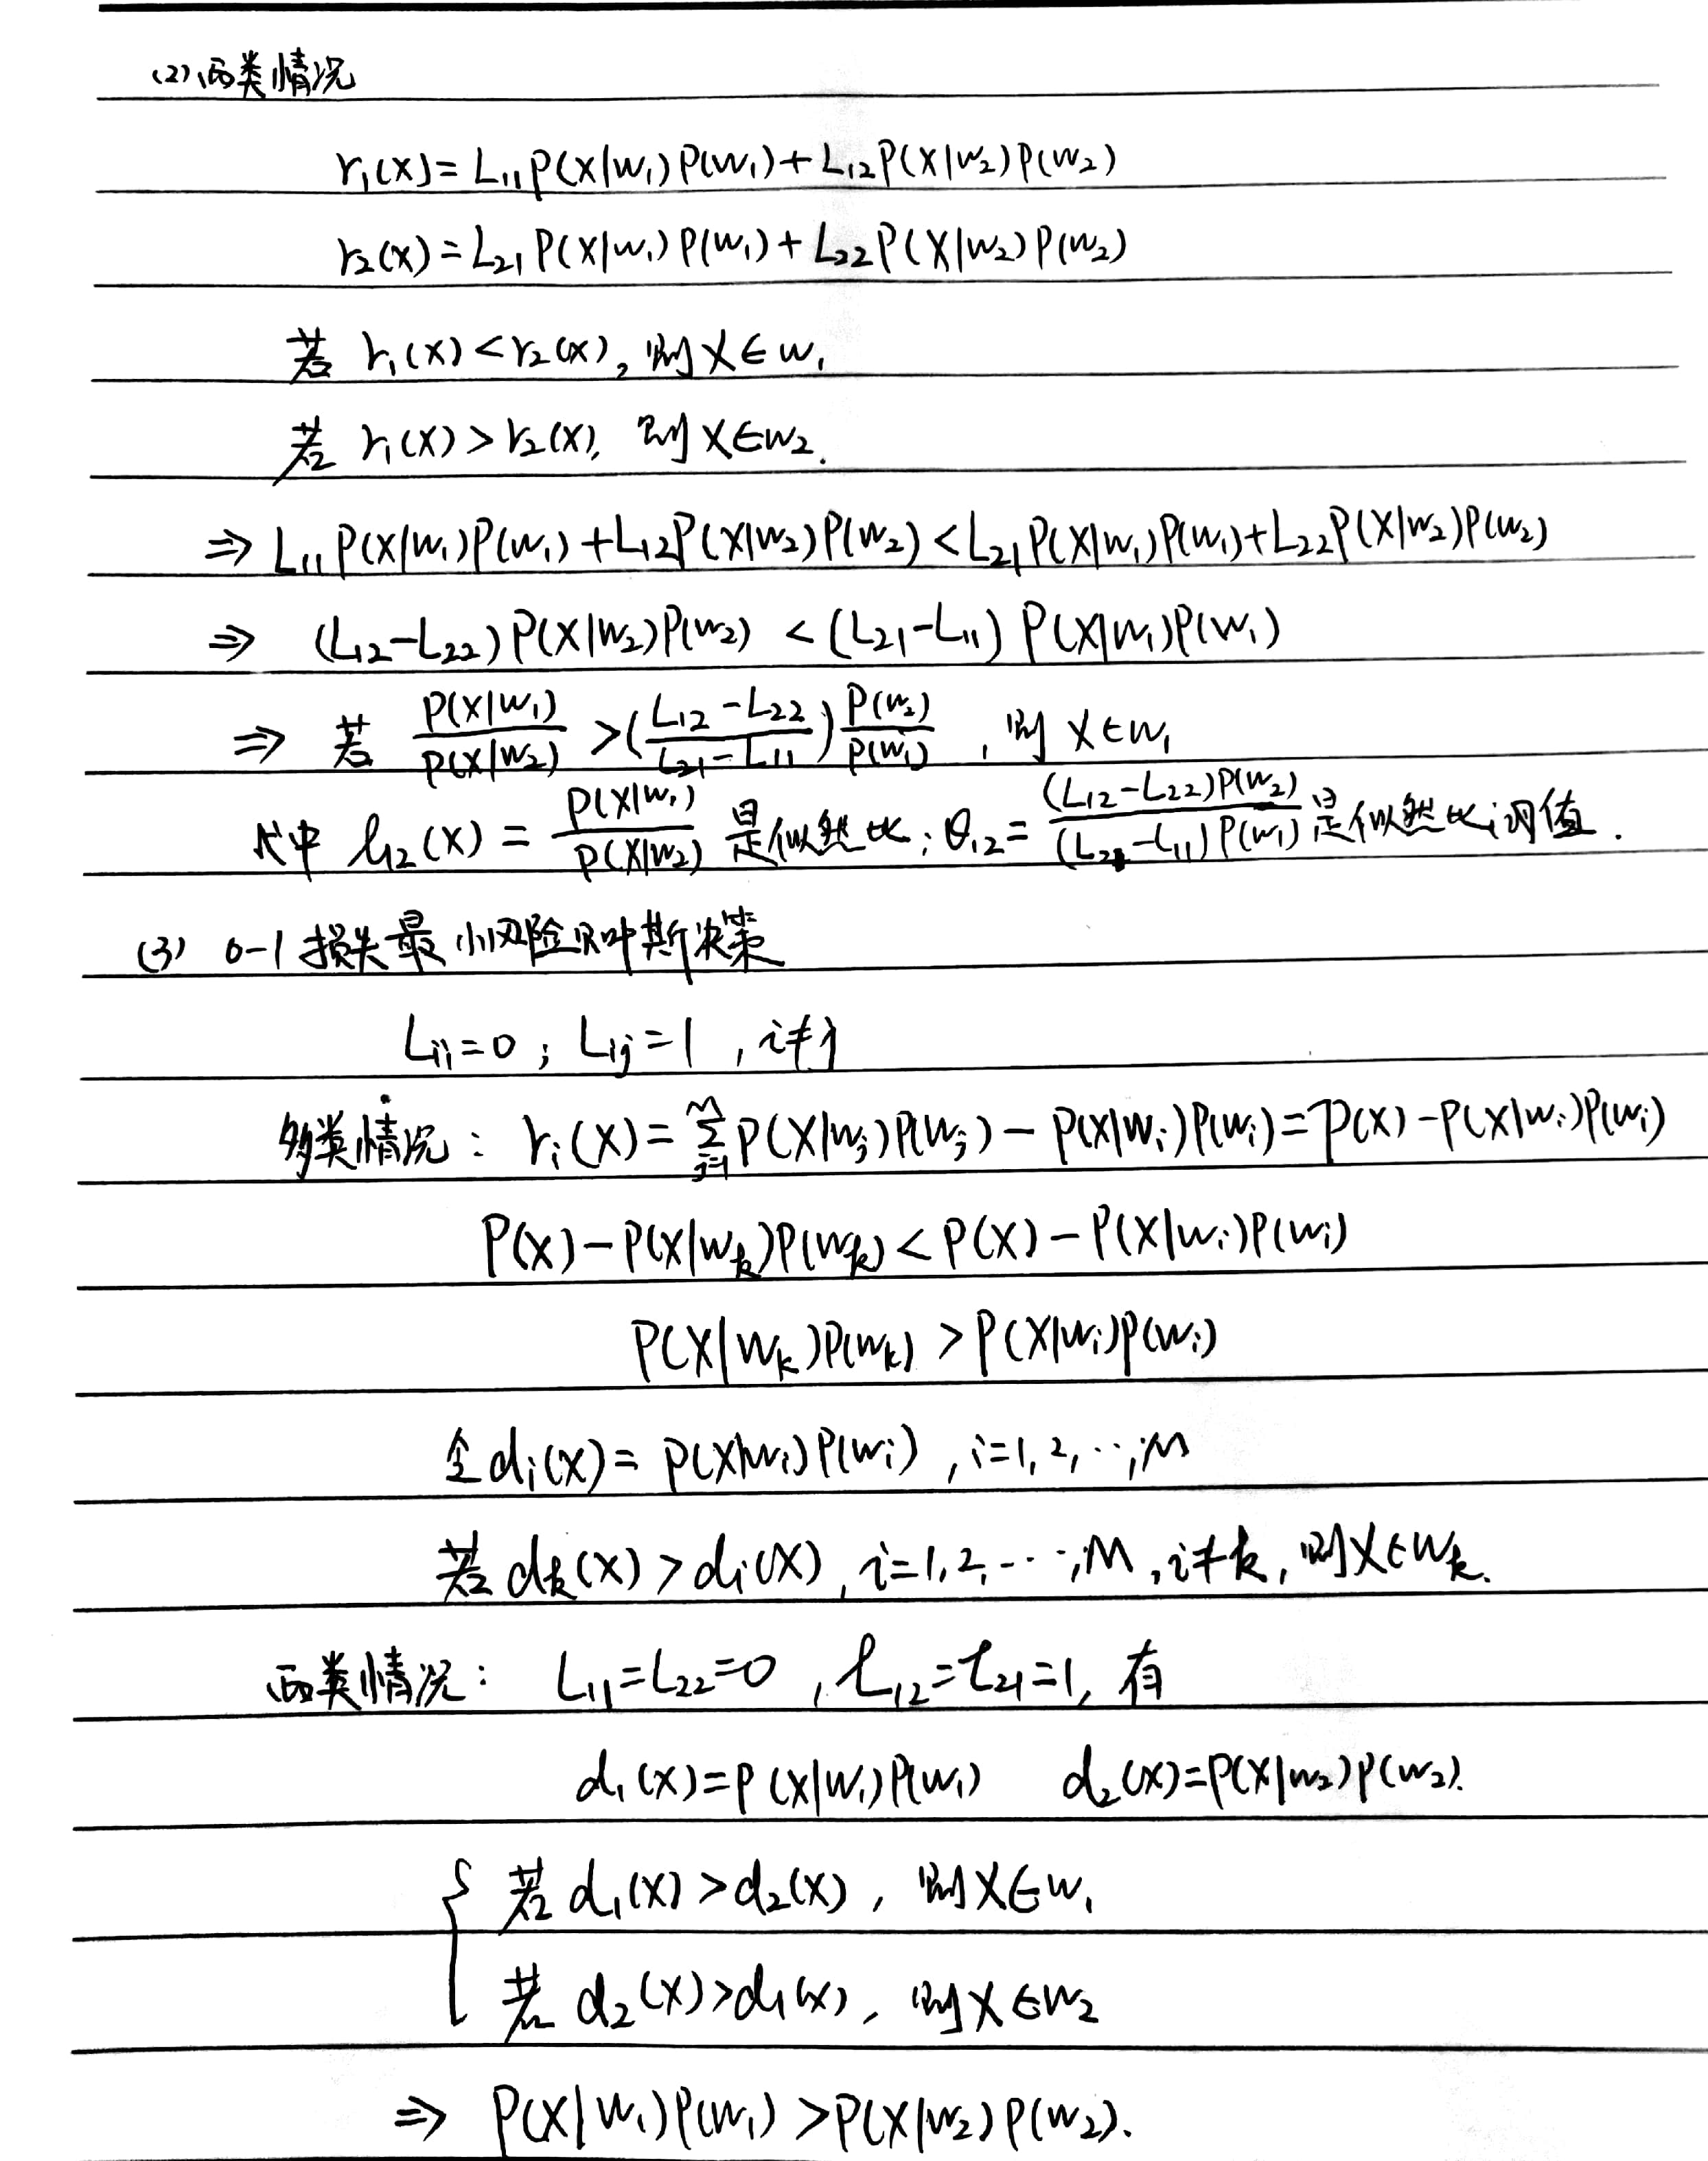 (2) 两类情况
r₁(X) = L₁₁P(X|w₁)P(w₁) + L₁₂P(X|w₂)P(w₂)
r₂(X) = L₂₁P(X|w₁)P(w₁) + L₂₂P(X|w₂)P(w₂)
若 r₁(X) < r₂(X), 则X∈w₁
若 r₁(X) > r₂(X), 则X∈w₂.
⇒ L₁₁P(X|w₁)P(w₁) + L₁₂P(X|w₂)P(w₂) < L₂₁P(X|w₁)P(w₁) + L₂₂P(X|w₂)P(w₂)
⇒ (L₁₂-L₂₂)P(X|w₂)P(w₂) < (L₂₁-L₁₁)P(X|w₁)P(w₁)
⇒ 若 P(X|w₁)/P(X|w₂) > ((L₁₂-L₂₂)/(L₂₁-L₁₁)) P(w₂)/P(w₁), 则 X∈w₁
式中 l₁₂(X) = P(X|w₁)/P(X|w₂) 是似然比; θ₁₂ = (L₁₂-L₂₂)P(w₂)/(L₂₁-L₁₁)P(w₁) 是似然比阈值.
(3) 0-1损失最小风险贝叶斯决策
Lᵢᵢ=0; Lᵢⱼ=1, i≠j
多类情况: rᵢ(X) = ∑ⱼ₌₁ᴹ P(X|wⱼ)P(wⱼ) - P(X|wᵢ)P(wᵢ) = P(X) - P(X|wᵢ)P(wᵢ)
P(X) - P(X|wₖ)P(wₖ) < P(X) - P(X|wᵢ)P(wᵢ)
P(X|wₖ)P(wₖ) > P(X|wᵢ)P(wᵢ)
令dᵢ(X) = P(X|wᵢ)P(wᵢ), i=1,2,…,M
若dₖ(X) > dᵢ(X), i=1,2,…,M, i≠k, 则X∈wₖ.
两类情况: L₁₁=L₂₂=0, L₁₂=L₂₁=1, 有
d₁(X)=P(X|w₁)P(w₁) d₂(X)=P(X|w₂)P(w₂).
{ 若 d₁(X) > d₂(X), 则X∈w₁
若 d₂(X) > d₁(X), 则X∈w₂
⇒ P(X|w₁)P(w₁) > P(X|w₂)P(w₂).